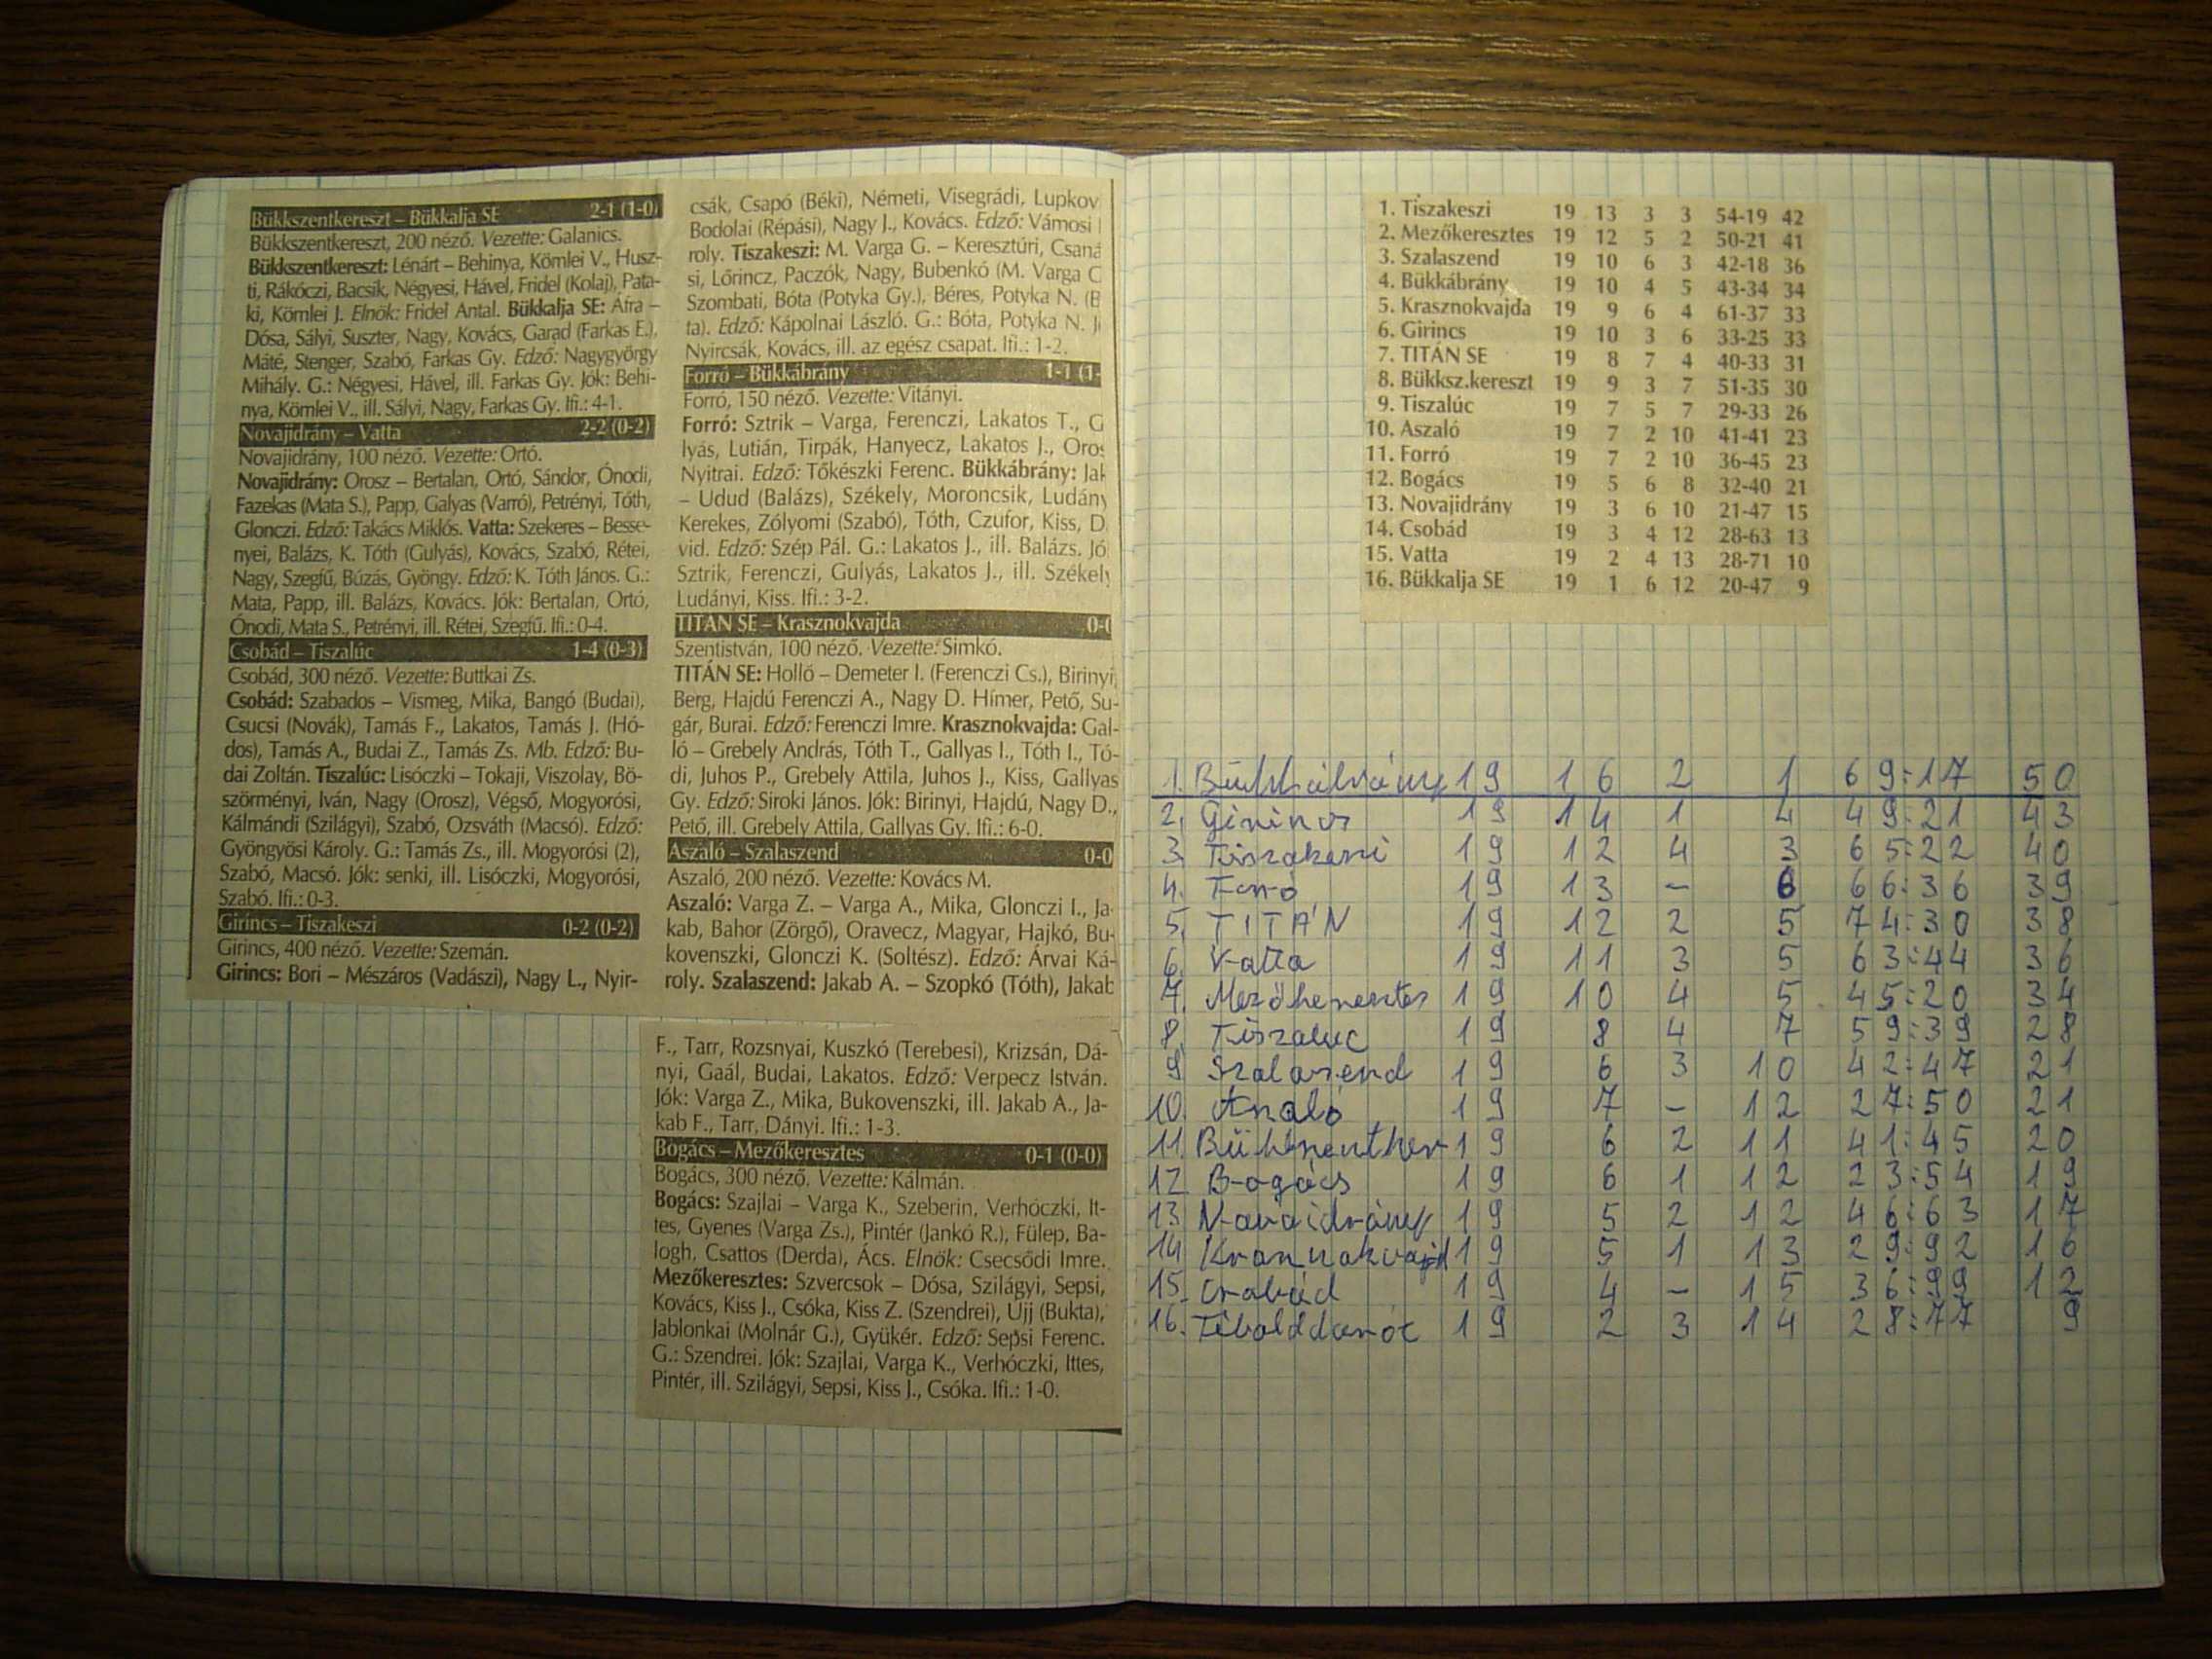 Bükkszentkereszt – Bükkalja SE 2-1 (1-0)
Bükkszentkereszt, 200 néző. Vezette: Galanics.
Bükkszentkereszt: Lénárt – Behinya, Kömlei V., Husz-
ti, Rákóczi, Bacsik, Négyesi, Hável, Fridel (Kolaj), Pata-
ki, Kömlei J. Elnök: Fridel Antal. Bükkalja SE: Áfra –
Dósa, Sályi, Suszter, Nagy, Kovács, Garad (Farkas E.),
Máté, Stenger, Szabó, Farkas Gy. Edző: Nagygyörgy
Mihály. G.: Négyesi, Hável, ill. Farkas Gy. Jók: Behi-
nya, Kömlei V., ill. Sályi, Nagy, Farkas Gy. Ifi.: 4-1.
Novajidrány – Vatta 2-2 (0-2)
Novajidrány, 100 néző. Vezette: Ortó.
Novajidrány: Orosz – Bertalan, Ortó, Sándor, Ónodi,
Fazekas (Mata S.), Papp, Galyas (Varró), Petrényi, Tóth,
Glonczi. Edző: Takács Miklós. Vatta: Szekeres – Besse-
nyei, Balázs, K. Tóth (Gulyás), Kovács, Szabó, Rétei,
Nagy, Szegfű, Búzás, Gyöngy. Edző: K. Tóth János. G.:
Mata, Papp, ill. Balázs, Kovács. Jók: Bertalan, Ortó,
Ónodi, Mata S., Petrényi, ill. Rétei, Szegfű. Ifi.: 0-4.
Csobád – Tiszalúc 1-4 (0-3)
Csobád, 300 néző. Vezette: Buttkai Zs.
Csobád: Szabados – Vismeg, Mika, Bangó (Budai),
Csucsi (Novák), Tamás F., Lakatos, Tamás J. (Hó-
dos), Tamás A., Budai Z., Tamás Zs. Mb. Edző: Bu-
dai Zoltán. Tiszalúc: Lisóczki – Tokaji, Viszolay, Bö-
szörményi, Iván, Nagy (Orosz), Végső, Mogyorósi,
Kálmándi (Szilágyi), Szabó, Ozsváth (Macsó). Edző:
Gyöngyösi Károly. G.: Tamás Zs., ill. Mogyorósi (2),
Szabó, Macsó. Jók: senki, ill. Lisóczki, Mogyorósi,
Szabó. Ifi.: 0-3.
Girincs – Tiszakeszi 0-2 (0-2)
Girincs, 400 néző. Vezette: Szemán.
Girincs: Bori – Mészáros (Vadászi), Nagy L., Nyir-
csák, Csapó (Béki), Németi, Visegrádi, Lupkov
Bodolai (Répási), Nagy J., Kovács. Edző: Vámosi
roly. Tiszakeszi: M. Varga G. – Keresztúri, Csaná
si, Lőrincz, Paczók, Nagy, Bubenkó (M. Varga
Szombati, Bóta (Potyka Gy.), Béres, Potyka N. (B
ta). Edző: Kápolnai László. G.: Bóta, Potyka N. J
Nyircsák, Kovács, ill. az egész csapat. Ifi.: 1-2.
Forró – Bükkábrány 1-1 (1-
Forró, 150 néző. Vezette: Vitányi.
Forró: Sztrik – Varga, Ferenczi, Lakatos T., G
lyás, Lutián, Tirpák, Hanyecz, Lakatos J., Oros
Nyitrai. Edző: Tőkészki Ferenc. Bükkábrány: Jak
– Udud (Balázs), Székely, Moroncsik, Ludány
Kerekes, Zólyomi (Szabó), Tóth, Czufor, Kiss, D
vid. Edző: Szép Pál. G.: Lakatos J., ill. Balázs. Jó
Sztrik, Ferenczi, Gulyás, Lakatos J., ill. Székely
Ludányi, Kiss. Ifi.: 3-2.
TITÁN SE – Krasznokvajda 0-0
Szentistván, 100 néző. Vezette: Simkó.
TITÁN SE: Holló – Demeter I. (Ferenczi Cs.), Birinyi,
Berg, Hajdú Ferenczi A., Nagy D. Hímer, Pető, Su-
gár, Burai. Edző: Ferenczi Imre. Krasznokvajda: Gal-
ló – Grebely András, Tóth T., Gallyas I., Tóth I., Tó-
di, Juhos P., Grebely Attila, Juhos J., Kiss, Gallyas
Gy. Edző: Siroki János. Jók: Birinyi, Hajdú, Nagy D.,
Pető, ill. Grebely Attila, Gallyas Gy. Ifi.: 6-0.
Aszaló – Szalaszend 0-0
Aszaló, 200 néző. Vezette: Kovács M.
Aszaló: Varga Z. – Varga A., Mika, Glonczi I., Ja-
kab, Bahor (Zörgő), Oravecz, Magyar, Hajkó, Bu-
kovenszki, Glonczi K. (Soltész). Edző: Árvai Ká-
roly. Szalaszend: Jakab A. – Szopkó (Tóth), Jakab
F., Tarr, Rozsnyai, Kuszkó (Terebesi), Krizsán, Dá-
nyi, Gaál, Budai, Lakatos. Edző: Verpecz István.
Jók: Varga Z., Mika, Bukovenszki, ill. Jakab A., Ja-
kab F., Tarr, Dányi. Ifi.: 1-3.
Bogács – Mezőkeresztes 0-1 (0-0)
Bogács, 300 néző. Vezette: Kálmán.
Bogács: Szajlai – Varga K., Szeberin, Verhóczki, It-
tes, Gyenes (Varga Zs.), Pintér (Jankó R.), Fülep, Ba-
logh, Csattos (Derda), Ács. Elnök: Csecsődi Imre.
Mezőkeresztes: Szvercsok – Dósa, Szilágyi, Sepsi,
Kovács, Kiss J., Csóka, Kiss Z. (Szendrei), Ujj (Bukta),
Jablonkai (Molnár G.), Gyükér. Edző: Sepsi Ferenc.
G.: Szendrei. Jók: Szajlai, Varga K., Verhóczki, Ittes,
Pintér, ill. Szilágyi, Sepsi, Kiss J., Csóka. Ifi.: 1-0.
1. Tiszakeszi 19 13 3 3 54-19 42
2. Mezőkeresztes 19 12 5 2 50-21 41
3. Szalaszend 19 10 6 3 42-18 36
4. Bükkábrány 19 10 4 5 43-34 34
5. Krasznokvajda 19 9 6 4 61-37 33
6. Girincs 19 10 3 6 33-25 33
7. TITÁN SE 19 8 7 4 40-33 31
8. Bükksz.kereszt 19 9 3 7 51-35 30
9. Tiszalúc 19 7 5 7 29-33 26
10. Aszaló 19 7 2 10 41-41 23
11. Forró 19 7 2 10 36-45 23
12. Bogács 19 5 6 8 32-40 21
13. Novajidrány 19 3 6 10 21-47 15
14. Csobád 19 3 4 12 28-63 13
15. Vatta 19 2 4 13 28-71 10
16. Bükkalja SE 19 1 6 12 20-47 9
1. Bükkábrány 19 16 2 1 69:17 50
2. Girincs 19 14 1 4 49:21 43
3. Tiszakeszi 19 12 4 3 65:22 40
4. Forró 19 13 – 6 66:36 39
5. TITÁN 19 12 2 5 74:30 38
6. Vatta 19 11 3 5 63:44 36
7. Mezőkeresztes 19 10 4 5 45:20 34
8. Tiszaluc 19 8 4 7 59:39 28
9 Szalaszend 19 6 3 10 42:47 21
10. Aszaló 19 7 – 12 27:50 21
11. Bükkszentker 19 6 2 11 41:45 20
12 Bogács 19 6 1 12 23:54 19
13 Novaidrány 19 5 2 12 46:63 17
14 Krasznokvajd 19 5 1 13 29:92 16
15. Csobád 19 4 – 15 36:99 12
16. Tibolddaróc 19 2 3 14 28:77 9